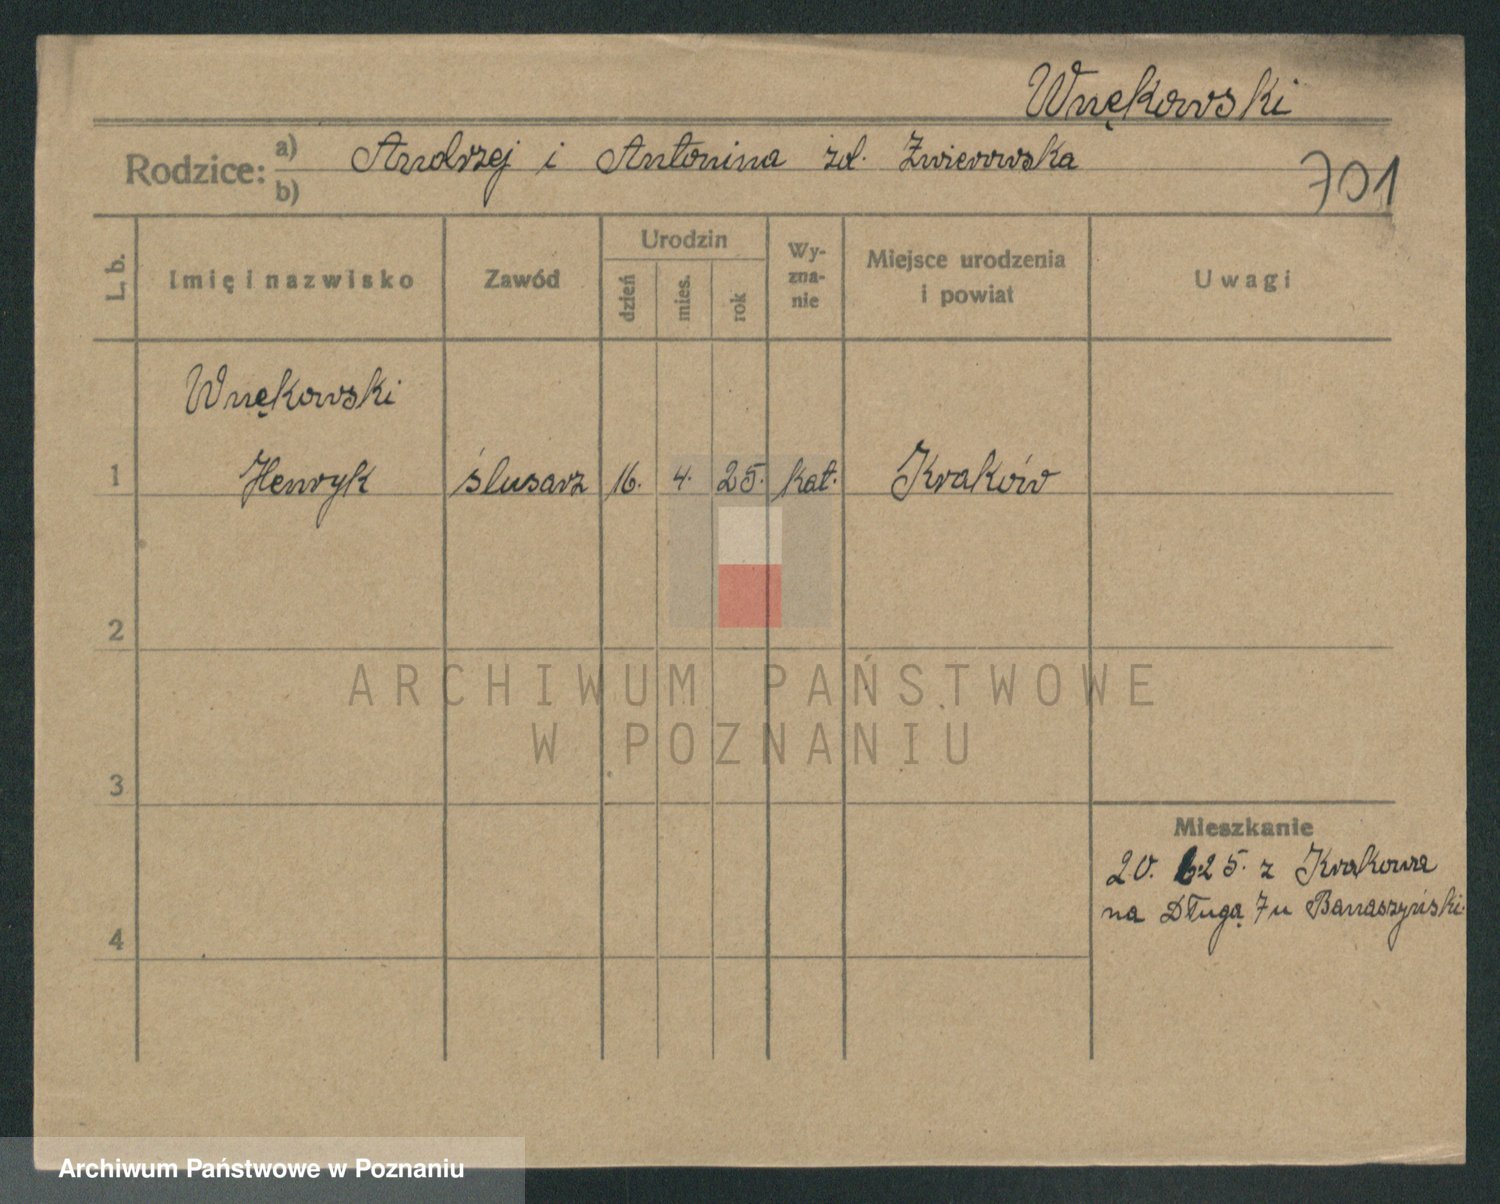 Wnękowski
Rodzice: a) Andrzej i Antonina zd. Zwierowska
b)
701
L. b. Imię i nazwisko Zawód Urodzin dzień mies. rok Wy-zna-nie Miejsce urodzenia i powiat Uwagi
Wnękowski
1 Henryk ślusarz 16. 4. 25. kat. Kraków
2
3
4
Mieszkanie
20. 25. z Krakowa
na Długą 7 u Banaszyński
ARCHIWUM PAŃSTWOWE
W POZNANIU
Archiwum Państwowe w Poznaniu